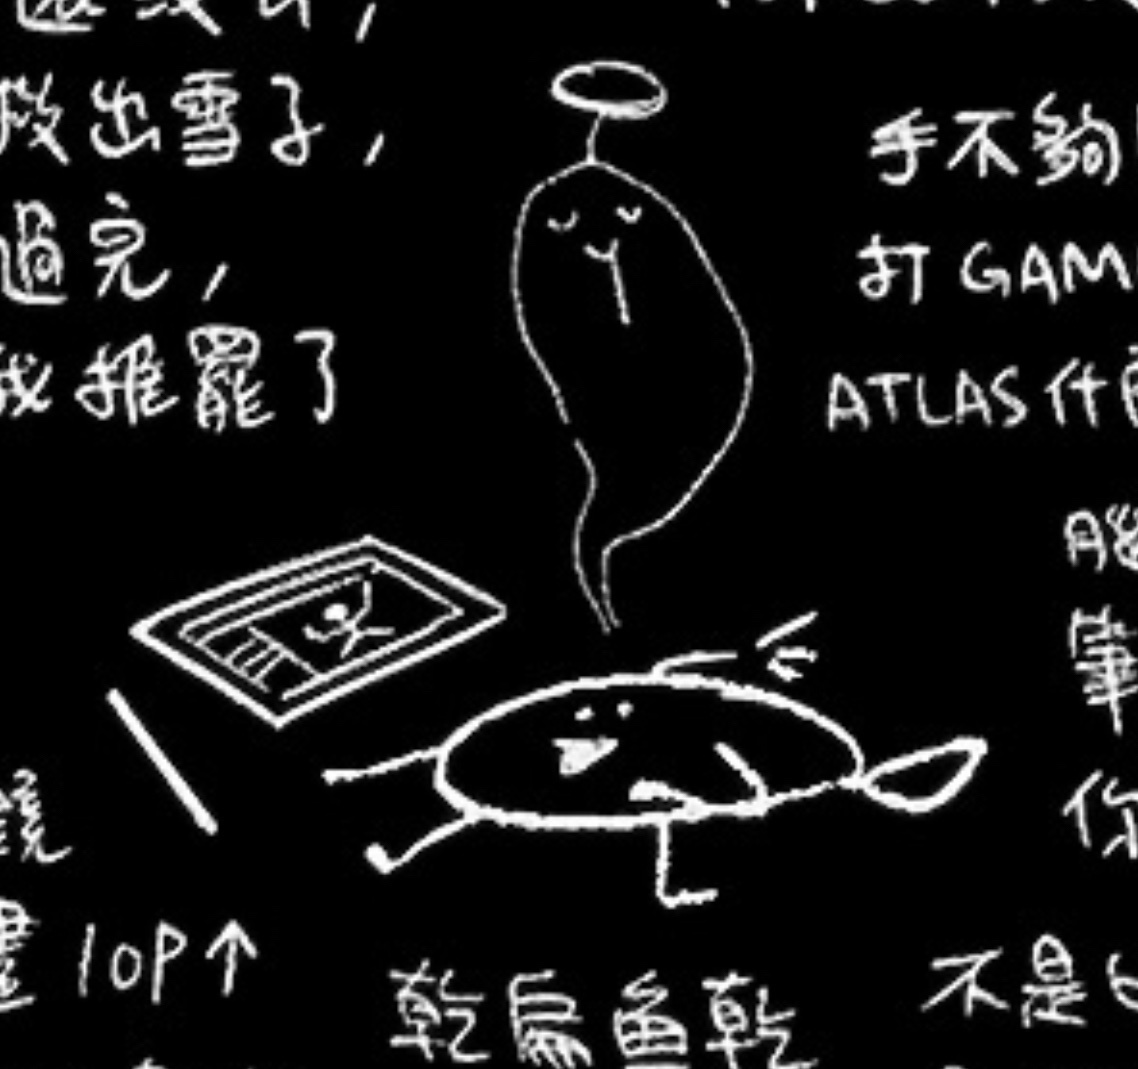 救出雪子,
過完,
我推罷了
手不夠
打 GAM
ATLAS 什
筆
你
錢
10P↑
乾扁魚乾
不是